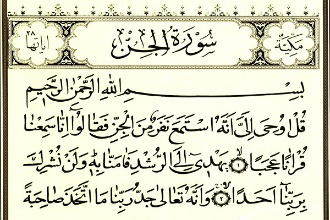 مكية سورة الجن آياتها ٢٨
بسم الله الرحمن الرحيم
قُلْ أُوحِىَ إِلَىَّ أَنَّهُ اسْتَمَعَ نَفَرٌ مِنَ الْجِنِّ فَقَالُوا إِنَّا سَمِعْنَا
قُرْآنًا عَجَبًا ۝ يَهْدِى إِلَى الرُّشْدِ فَآمَنَّا بِهِ وَلَنْ نُشْرِكَ
بِرَبِّنَا أَحَدًا ۝ وَأَنَّهُ تَعَالَى جَدُّ رَبِّنَا مَا اتَّخَذَ صَاحِبَةً